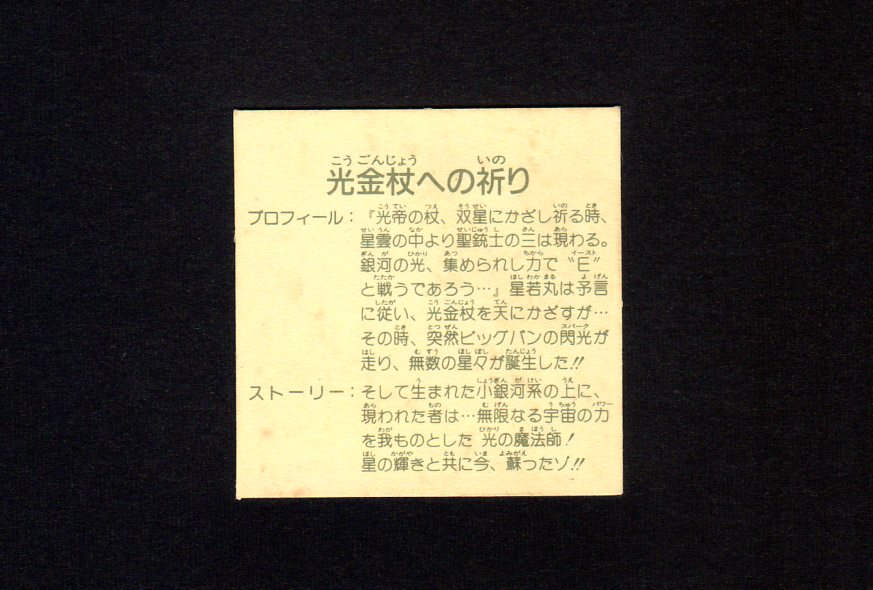 光金杖への祈り
プロフィール：『光帝の杖、双星にかざし祈る時、
星雲の中より聖銃士の三は現わる。
銀河の光、集められし力で〝E〟
と戦うであろう…』星若丸は予言
に従い、光金杖を天にかざすが…
その時、突然ビッグバンの閃光が
走り、無数の星々が誕生した!!
ストーリー：そして生まれた小銀河系の上に、
現われた者は…無限なる宇宙の力
を我ものとした 光の魔法師！
星の輝きと共に今、蘇ったゾ!!